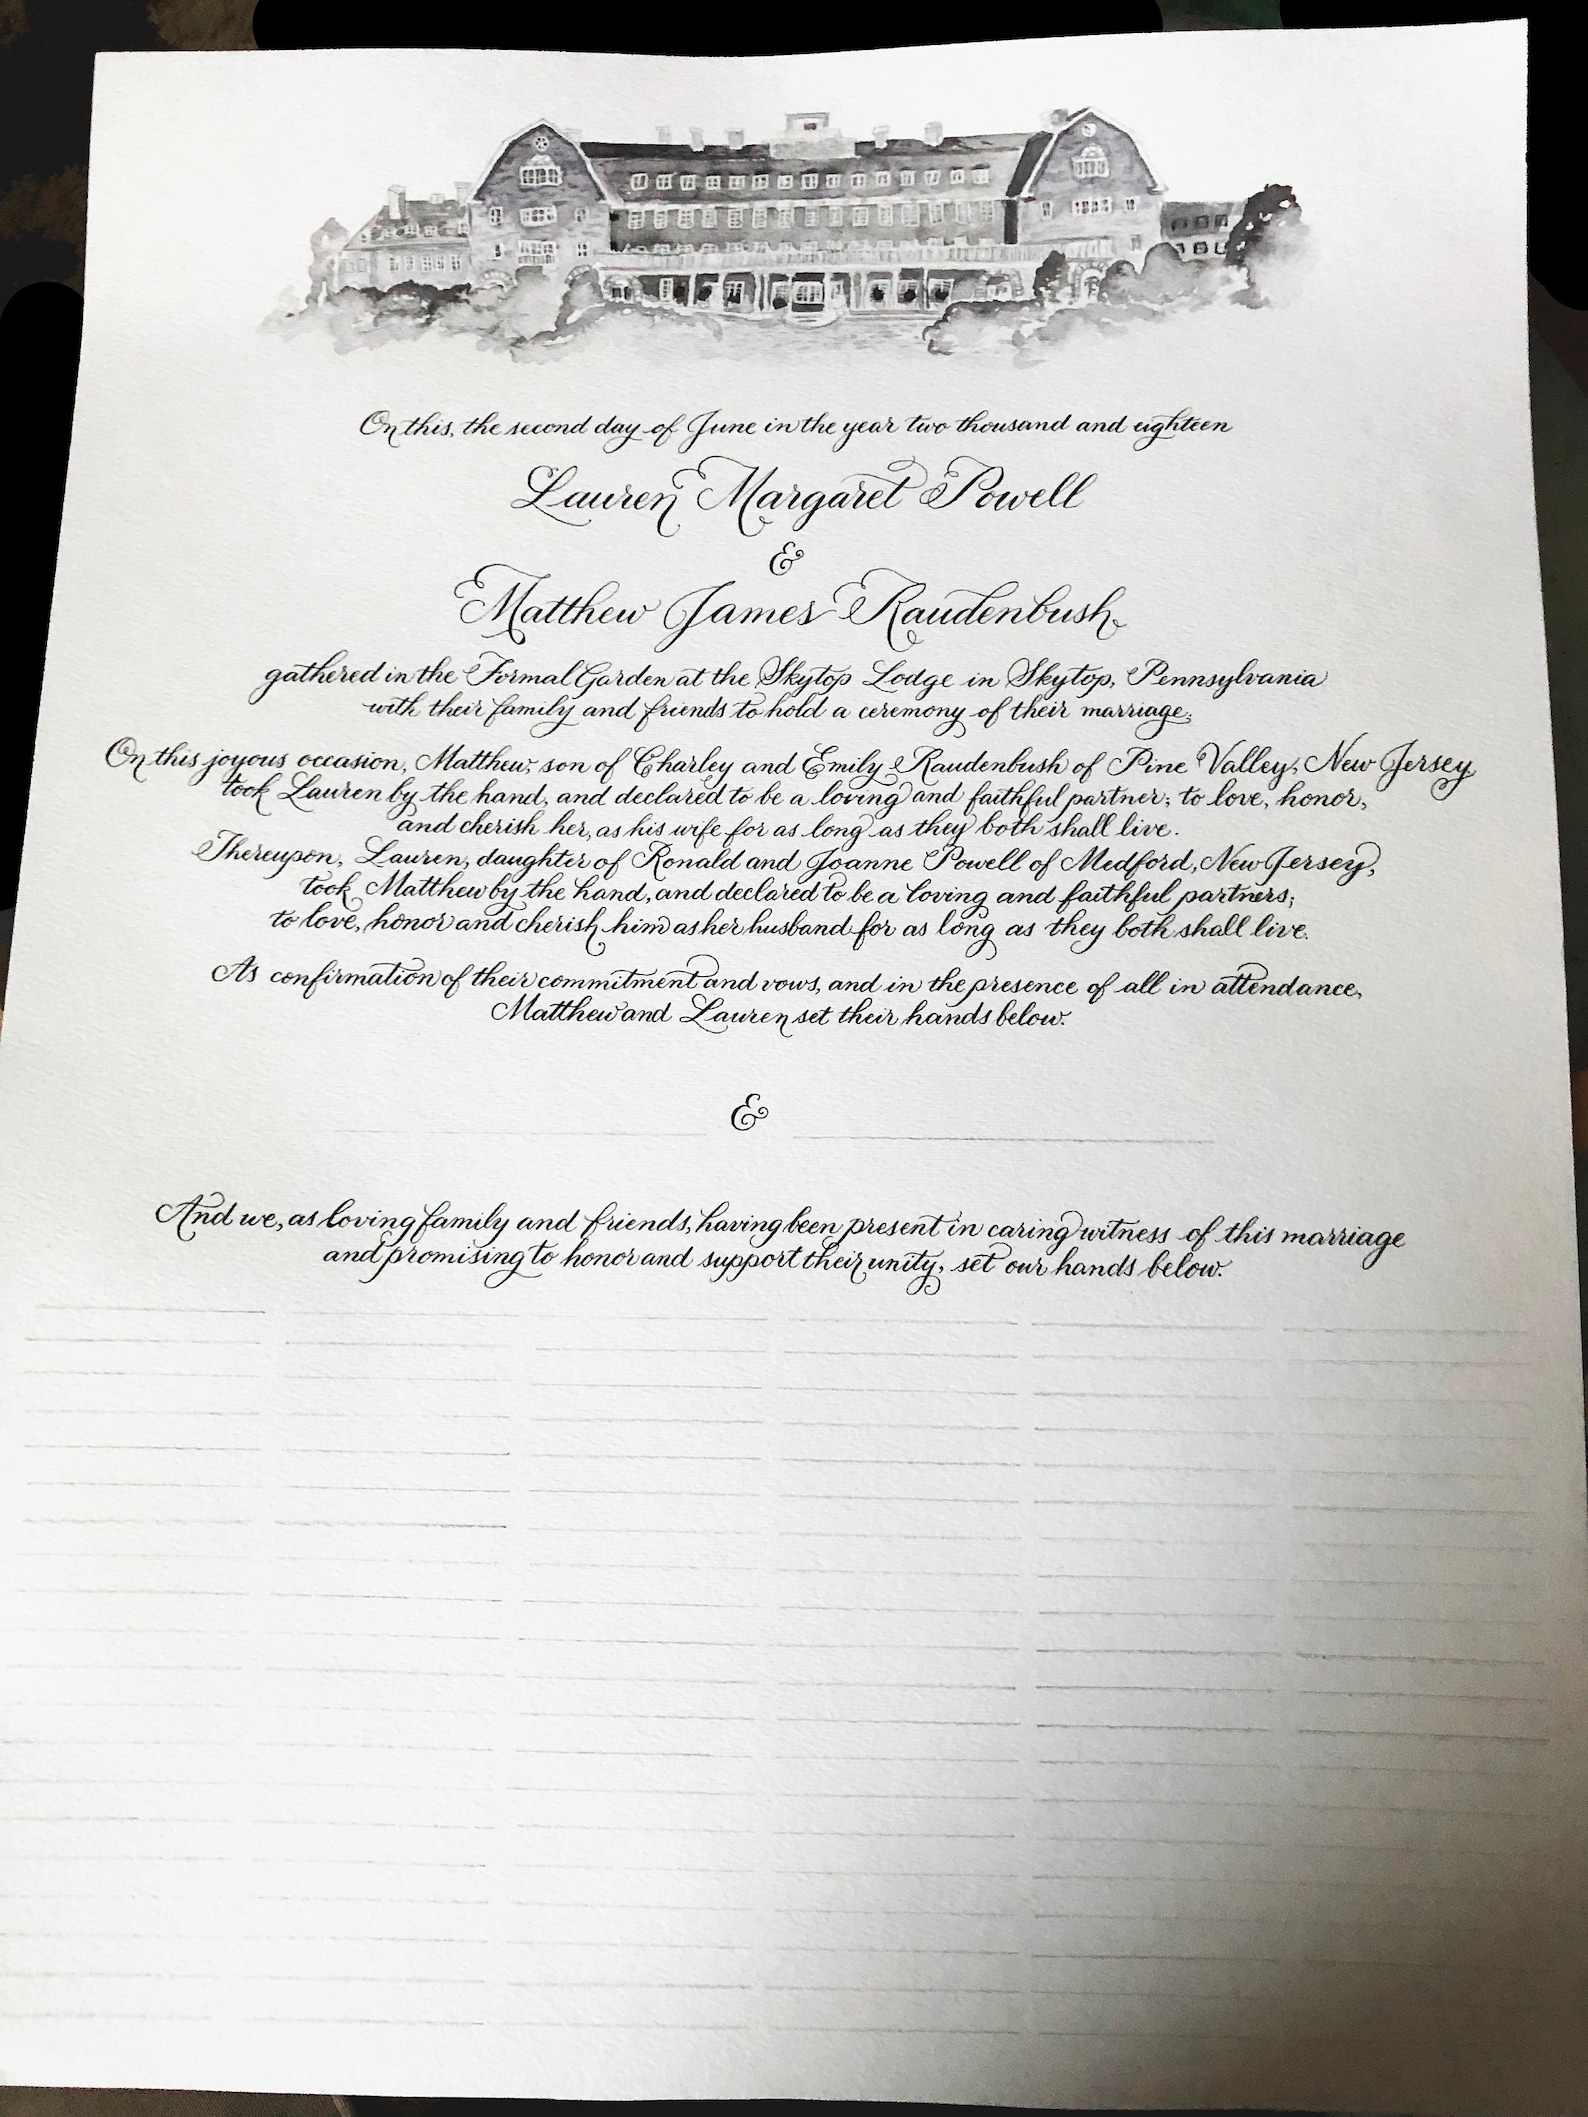 On this, the second day of June in the year two thousand and eighteen
Lauren Margaret Powell
&
Matthew James Raudenbush
gathered in the Formal Garden at the Skytop Lodge in Skytop, Pennsylvania
with their family and friends to hold a ceremony of their marriage;
On this joyous occasion, Matthew, son of Charley and Emily Raudenbush of Pine Valley, New Jersey
took Lauren by the hand, and declared to be a loving and faithful partner; to love, honor,
and cherish her, as his wife for as long as they both shall live.
Thereupon, Lauren, daughter of Ronald and Joanne Powell of Medford, New Jersey,
took Matthew by the hand, and declared to be a loving and faithful partners;
to love, honor and cherish him as her husband for as long as they both shall live.
As confirmation of their commitment and vows, and in the presence of all in attendance,
Matthew and Lauren set their hands below.
&
And we, as loving family and friends, having been present in caring witness of this marriage
and promising to honor and support their unity, set our hands below.